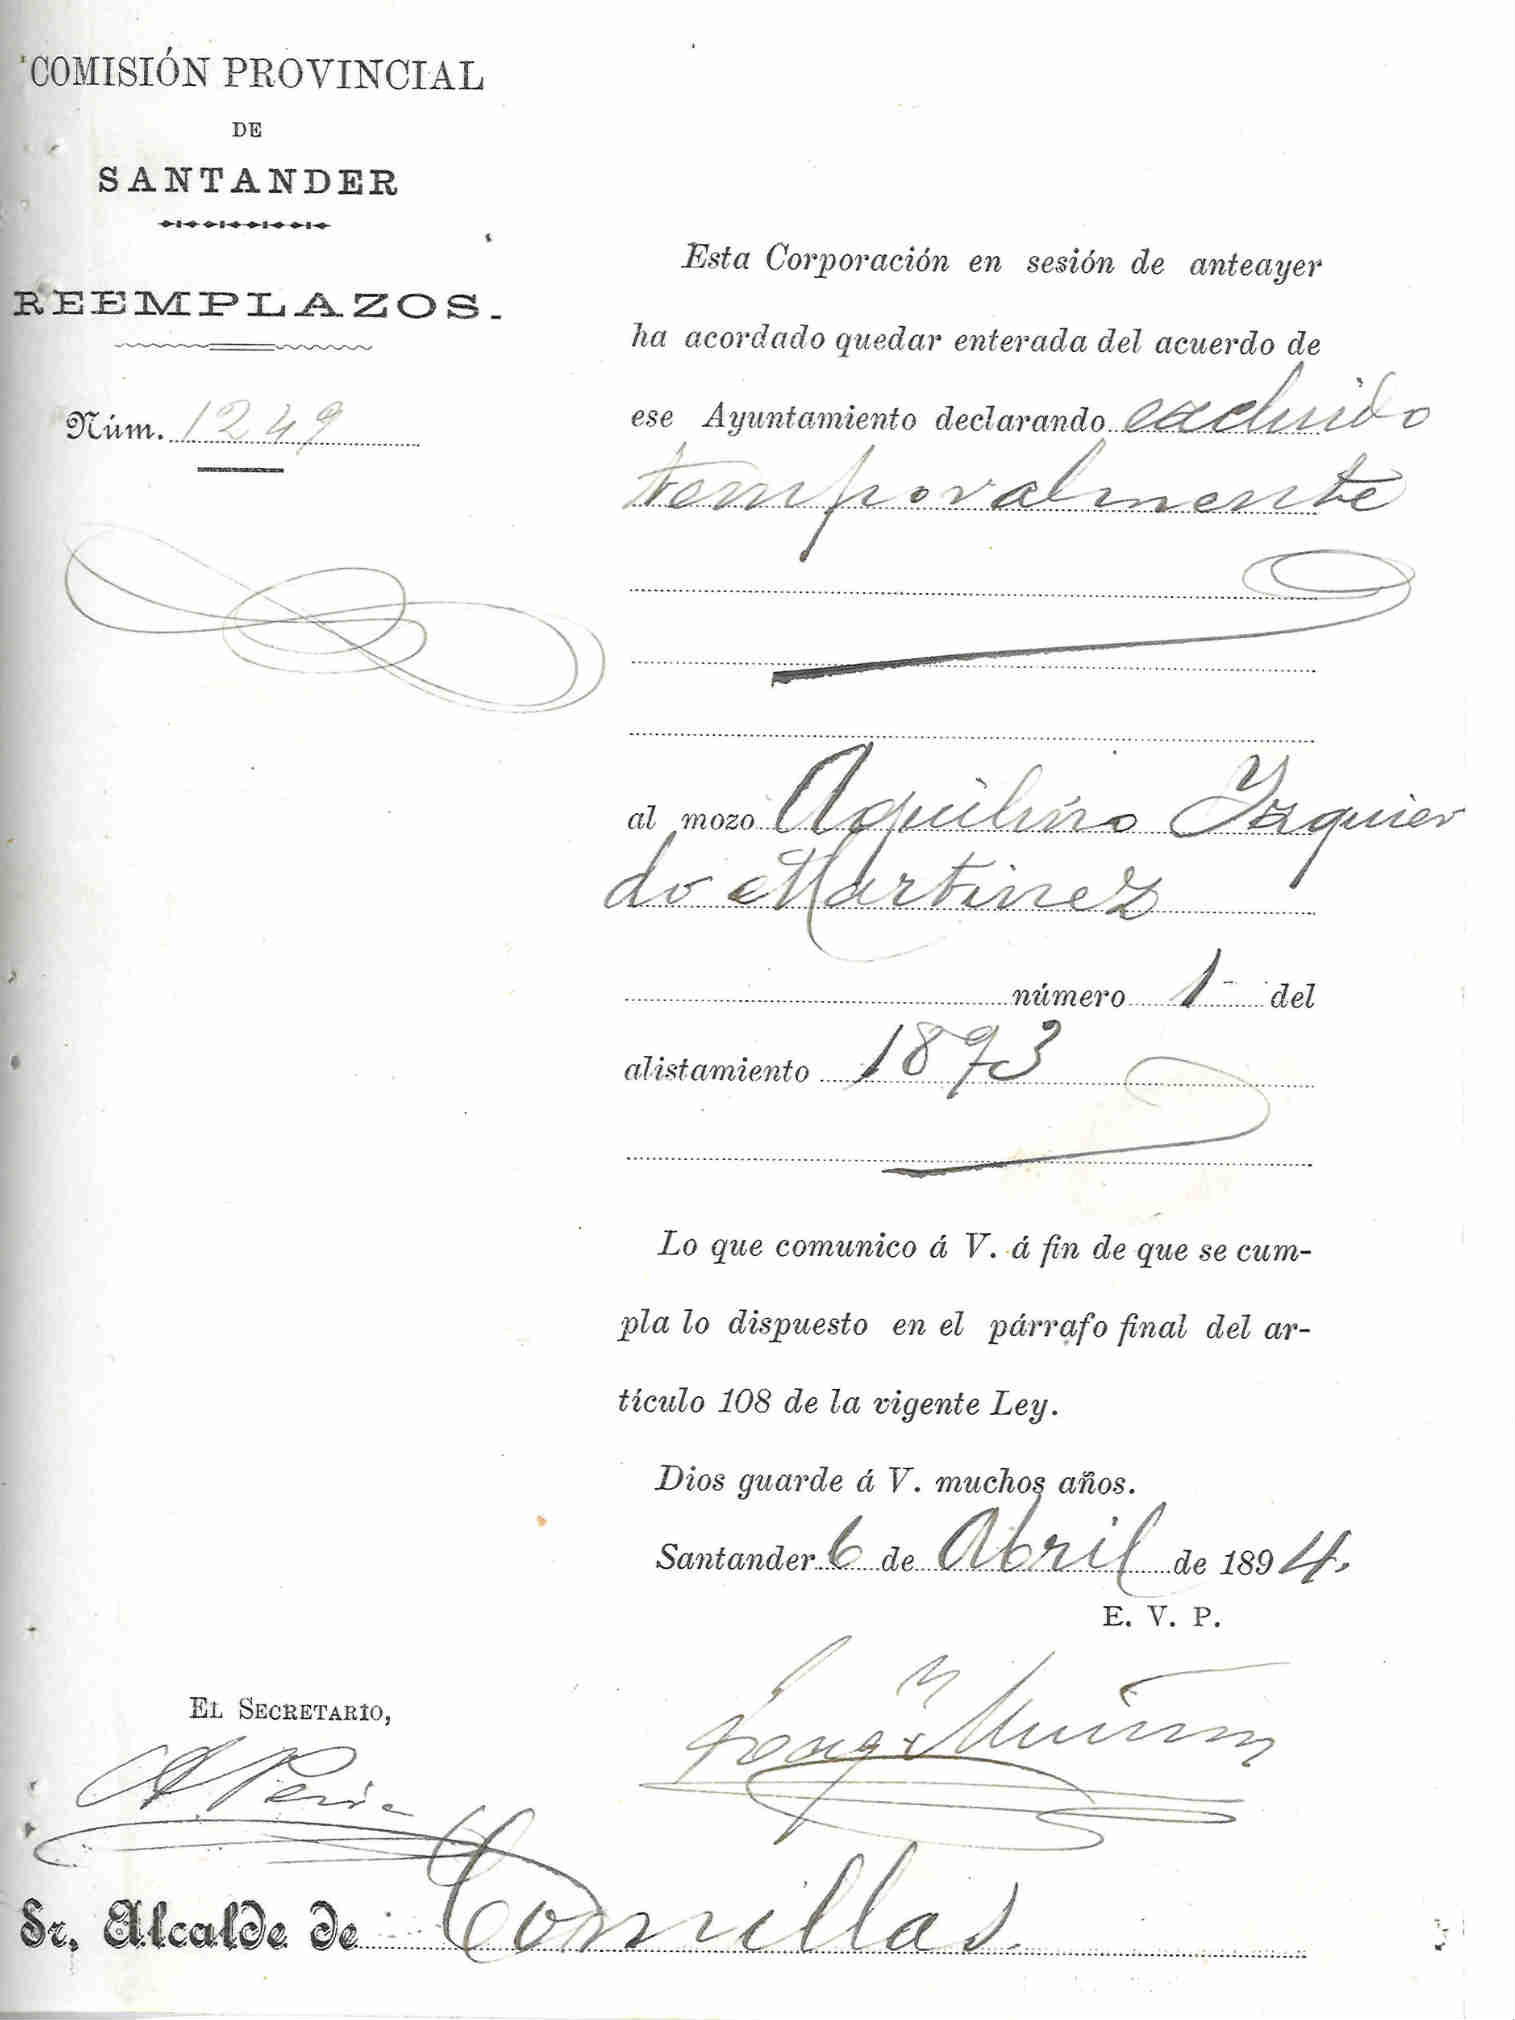 COMISIÓN PROVINCIAL
DE
SANTANDER
REEMPLAZOS.
Núm. 1249
Esta Corporación en sesión de anteayer
ha acordado quedar enterada del acuerdo de
ese Ayuntamiento declarando excluido
temporalmente
al mozo Aquilino Izquier
do Martinez
número 1 del
alistamiento 1893
Lo que comunico á V. á fin de que se cum-
pla lo dispuesto en el párrafo final del ar-
tículo 108 de la vigente Ley.
Dios guarde á V. muchos años.
Santander 6 de Abril de 1894.
E. V. P.
EL SECRETARIO,
Sr. Alcalde de Comillas